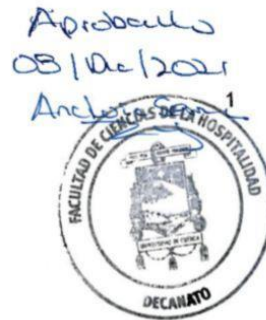 Aprobado
08/Dic/2021
1
FACULTAD DE CIENCIAS DE LA HOSPITALIDAD
UNIVERSITAS DE CUENCA
DECANATO